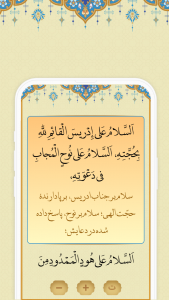 اَلسَّلامُ عَلى اِدْريسَ الْقائِمِ لِلّٰهِ
بِحُجَّتِهِ، اَلسَّلامُ عَلى نُوحٍ الْمُجابِ
فى دَعْوَتِهِ،
سلام بر جناب ادریس، برپادارنده
حجت الهی؛ سلام بر نوح، پاسخ داده
شده در دعایش؛
اَلسَّلامُ عَلى هُودٍ الْمَمْدُودِ مِنَ